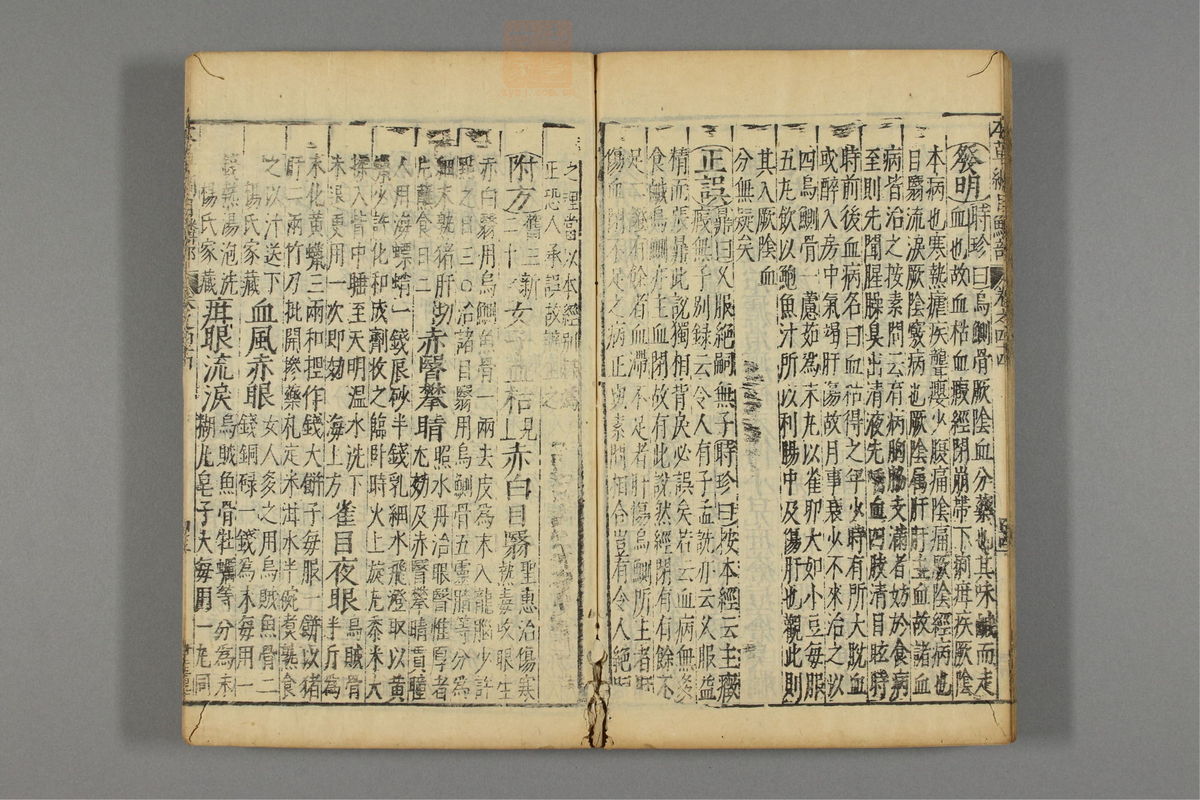 發明時珍曰烏鰂骨厥陰血分藥也其味鹹而走
血也故血枯血瘕經閉崩帶下痢疳疾厥陰
本病也寒熱瘧疾聾癭少腹痛陰痛厥陰經病也
目翳流淚厥陰竅病也厥陰屬肝肝主血故諸血
病者治之按素問云有病胸脇支滿者妨於食病
至則先聞腥臊臭出清液先唾血四肢清目眩時
時前後血病名曰血枯得之年少時有所大脫血
或醉入房中氣竭肝傷故月事衰少不來治之以
四烏鰂骨一藘茹為末丸以雀卵大如小豆每服
五丸飲以鮑魚汁所以利腸中及傷肝也觀此則
其入厥陰血
分無疑矣
正誤鼎曰久服絕嗣無子時珍曰按本經云主癥
瘕無子別錄云令人有子孟詵亦云久服益
精而張鼎此說獨相背戾必誤矣若云血病無多
食鹹烏鰂亦主血閉故有此說然經閉有有餘不
足二證有餘者血滯不足者肝傷烏鰂所主者肝
傷血閉不足之病正與素問相合豈有令人絕
之理當以本經別錄
正恐人承誤故辨之
附方舊三新二十女子血枯見上赤白目翳聖惠治傷寒
熱毒攻眼生
赤白翳用烏鰂魚骨一兩去皮為末入龍腦少許
點之日三○治諸目翳用烏鰂骨五靈脂等分為
細末熟豬肝切
片蘸食日二赤翳攀睛照水丹治眼翳惟厚者
尤效及赤翳攀睛貫瞳
人用海螵蛸一錢辰砂半錢乳細水飛澄取以黃
蠟少許化和成劑收之臨臥時火上旋丸黍米大
揉入眥中睡至天明溫水洗下
未退更用一次即效海上方雀目夜眼烏賊骨
半斤為
末化黃蠟三兩和捏作錢大餅子每服一餅以豬
肝二兩竹刀批開摻藥札定米泔水半碗煮熟食
之以汁送下
楊氏家藏血風赤眼女人多之用烏賊魚骨二
錢銅碌一錢為末每用一
錢熱湯泡洗
楊氏家藏疳眼流淚烏賊魚骨牡蠣等分為末
糊丸皂子大每用一丸同